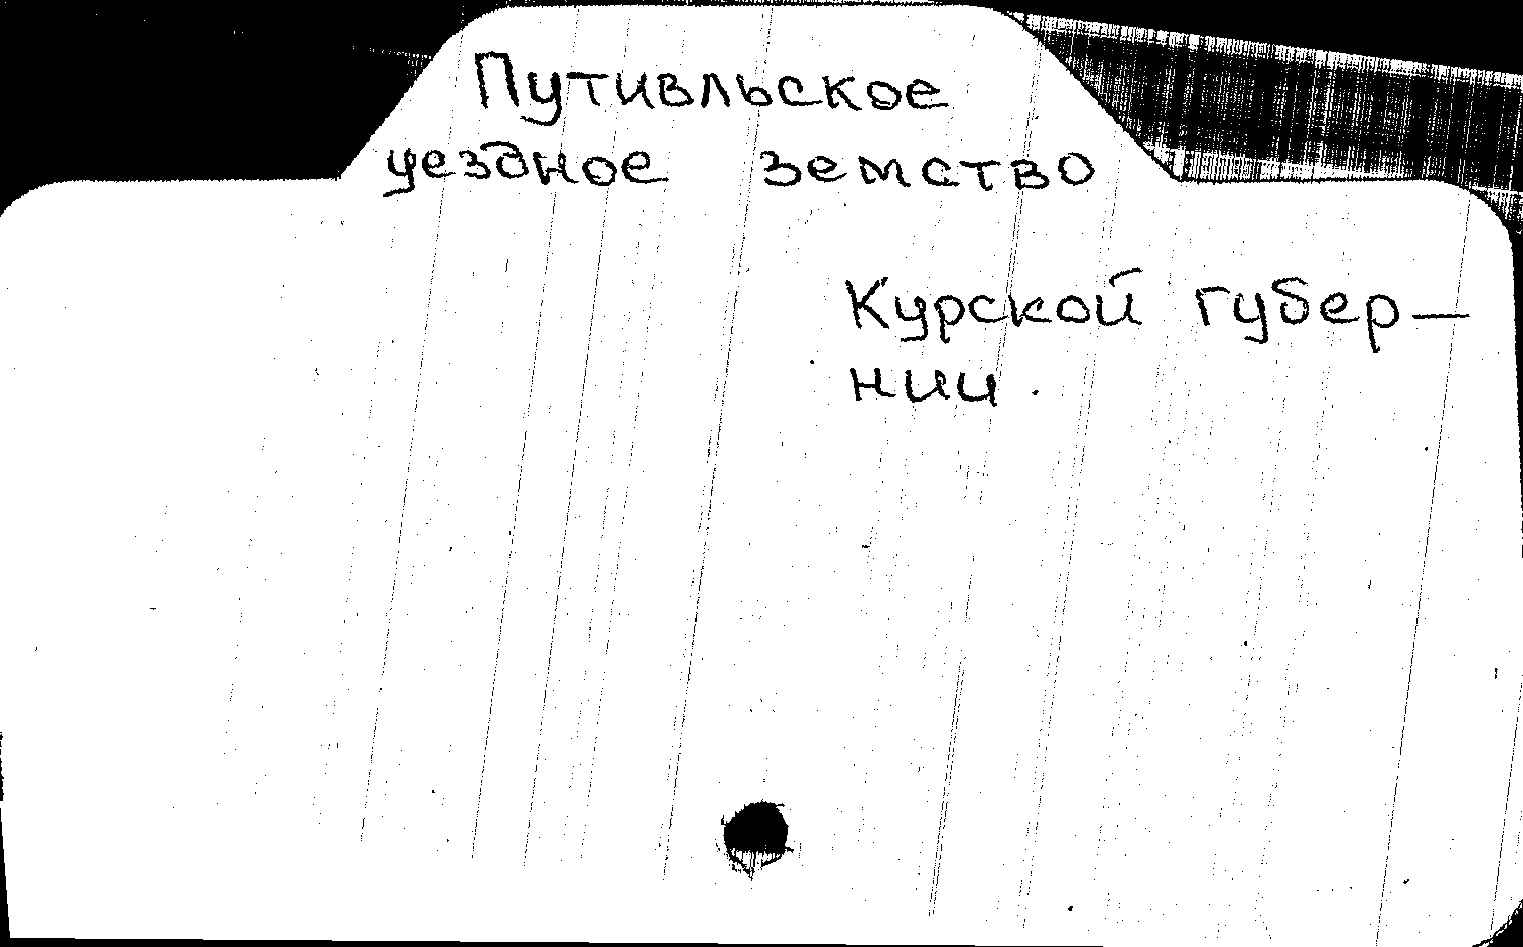 Путивльское
уездное земство
Курской губер-
нии.